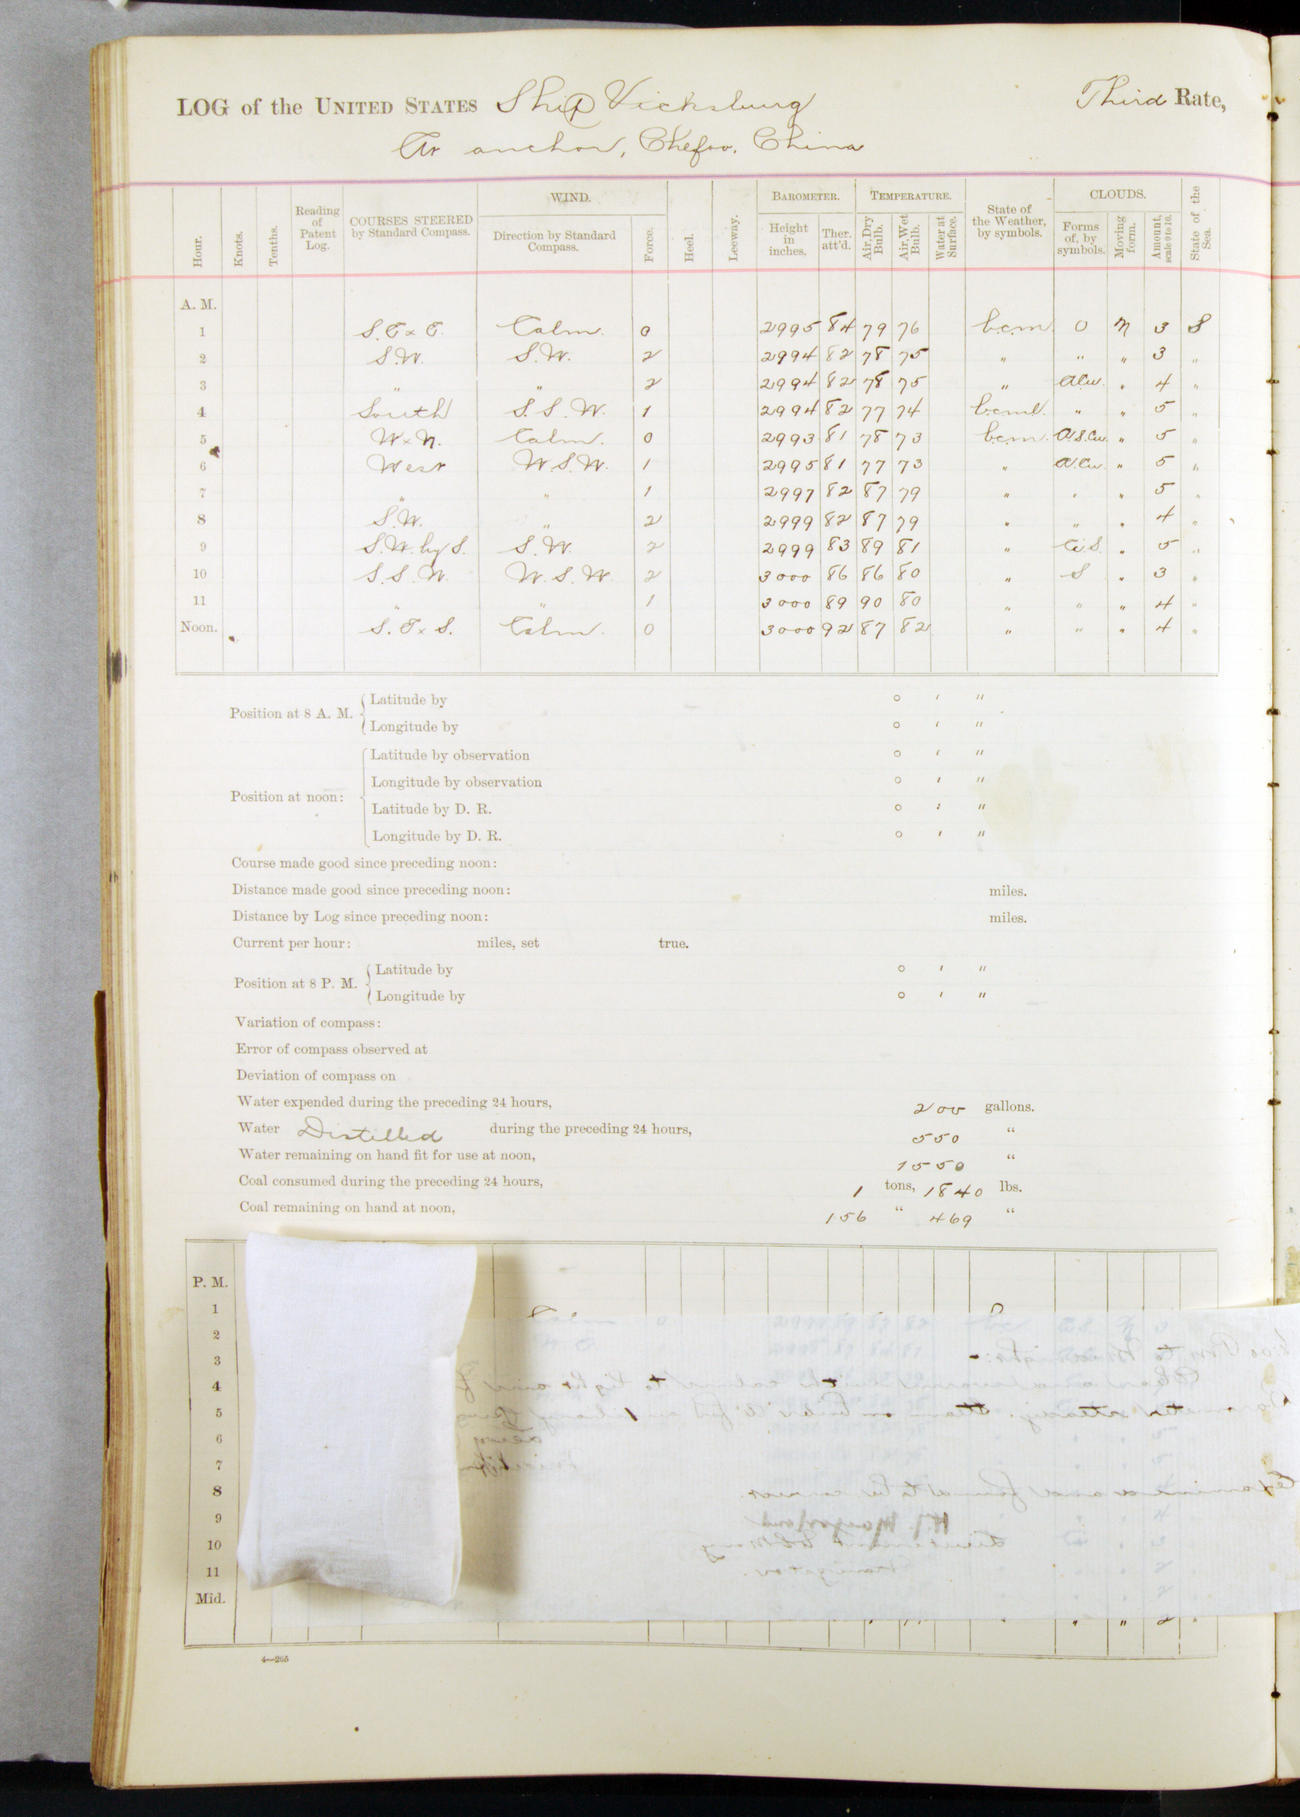 LOG of the UNITED STATES Ship Vicksburg Third Rate,
At anchor, Chefoo, China
Hour. Knots. Tenths. Reading of Patent Log. COURSES STEERED by Standard Compass. WIND. Direction by Standard Compass. Force. Heel. Leeway. BAROMETER. Height in inches. Ther. att'd. TEMPERATURE. Air, Dry Bulb. Air, Wet Bulb. Water at Surface. State of the Weather, by symbols. CLOUDS. Forms of, by symbols. Moving form. Amount, scale 0 to 10. State of the Sea.
A. M.
1 S.E x E. Calm. 0 2995 84 79 76 b.c.m. 0 N 3 S
2 S.W. S.W. 2 2994 82 78 75 " " " 3 "
3 " " 2 2994 82 78 75 " a.cu. " 4 "
4 South S.S.W. 1 2994 82 77 74 b.c.m.l. " " 5 "
5 W x N. Calm. 0 2993 81 78 73 b.c.m. A.S.Cu. " 5 "
6 West W.S.W. 1 2995 81 77 73 " A.Cu. " 5 "
7 " " 1 2997 82 87 79 " " " 5 "
8 S.W. " 2 2999 82 87 79 " " " 4 "
9 S.W. by S. S.W. 2 2999 83 89 81 " Ci.S. " 5 "
10 S.S.W. W.S.W. 2 3000 86 86 80 " S " 3 "
11 " " 1 3000 89 90 80 " " " 4 "
Noon. S.E x S. Calm. 0 3000 92 87 82 " " " 4 "
Position at 8 A. M. Latitude by ° ′ ″
Longitude by ° ′ ″
Position at noon: Latitude by observation ° ′ ″
Longitude by observation ° ′ ″
Latitude by D. R. ° ′ ″
Longitude by D. R. ° ′ ″
Course made good since preceding noon:
Distance made good since preceding noon: miles.
Distance by Log since preceding noon: miles.
Current per hour: miles, set true.
Position at 8 P. M. Latitude by ° ′ ″
Longitude by ° ′ ″
Variation of compass:
Error of compass observed at
Deviation of compass on
Water expended during the preceding 24 hours, 200 gallons.
Water Distilled during the preceding 24 hours, 550 "
Water remaining on hand fit for use at noon, 1550 "
Coal consumed during the preceding 24 hours, 1 tons, 1840 lbs.
Coal remaining on hand at noon, 156 " 469 "
P. M.
1
2
3
4
5
6
7
8
9
10
11
Mid. " " 2 "
4—265